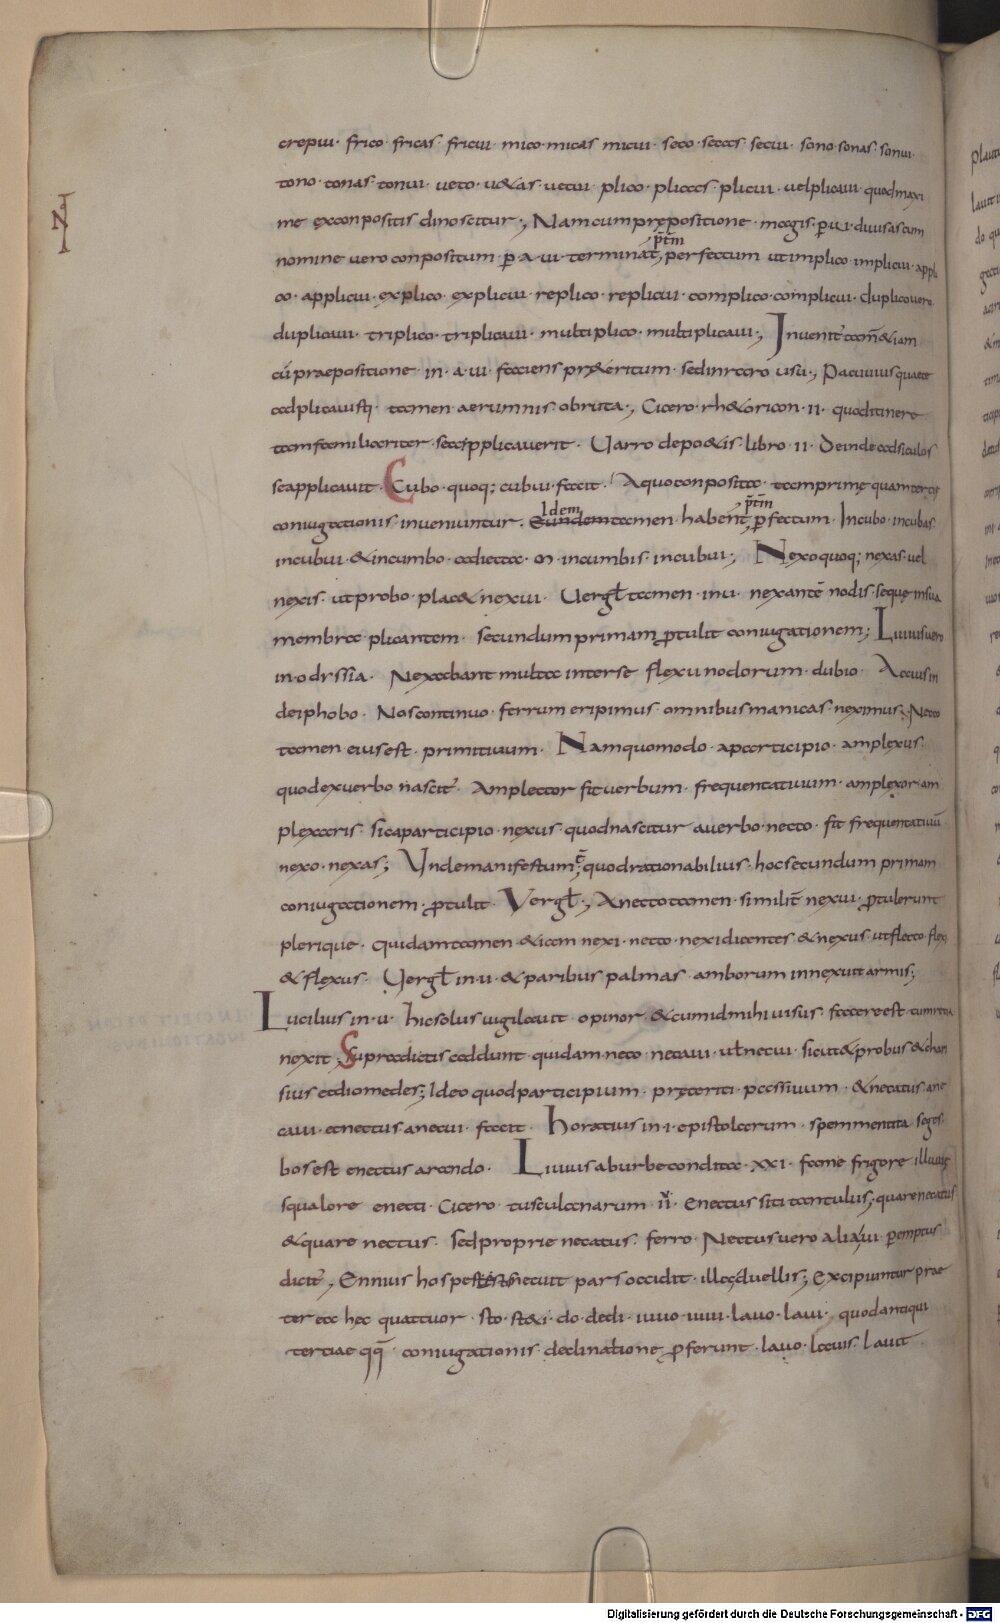 crepui· frico· fricas· fricui· mico· micas micui· seco· seccas secui· sono· sonas· sonui·
tono· tonas· tonui· ueto· u&as· uetui· plico· pliccas plicui· uelplicaui· quodmaxi
me exconpositis dinoscitur·, Namcumprępositione· magis· ꝑ ui· diuisascum
N
nomine uero conpositum· ꝑ· a· ui· terminat, perfectum ut implico· implicui· appli
p̄t̄m
co· applicui· explico· explicui· replico· replicui· complico· complicui· duplicouero
duplicaui· triplico· triplicaui· multiplico· multiplicaui·, Inuenit̄ tam̄&iam
cū praepositione· in· a· ui· faciens pr&eritum· sedinraro usu·, Pacuuiusquaete
adplicauisti· tamen· aerumnis· obruta·, Cicero· rh&oricon· II· quoditinere
tamfamiliariter· seapplicauerit· Uarro depo&is· libro· II· Deindeadsiculos
seapplicauit· Cubo· quoq; cubui· facit· Aquoconposita· tamprimę quamtertię
coniugationis· inueniuntur· Eundemtamen· habent, ꝑfectum· Incubo· incubas·
Idem p̄t̄m
incubui· &incumbo· adiecta· m· incumbis· incubui·; Nexoquoq; nexas· uel
nexis· utprobo· plac& nexui· Uergł tamen· inu· nexantē nodis· sequę insua
membra plicantem· secundumprimam ꝓtulit coniugationem; Liuiusuero
in· odrssia· Nexabant multa interse flexu nodorum· dubio· Acciusin
deiphobo· Noscontinuo· ferrum eripimus· omnibusmanicas· neximus; Necto
tamen eiusest· primitiuum· Namquomodo· aparticipio· amplexus·
quodexuerbo nascit̄· Amplector fituerbum· frequentatiuum· amplexor am
plexaris· sicaparticipio· nexus· quodnascitur auerbo· necto· fit frequentatiuū
nexo· nexas; Undemanifestum, quodrationabilius· hocsecundum primam
coniugationem· ꝓtulit· Vergł·, Anectotamen· similit̄ nexui· ꝓtulerunt
plerique· Quidamtamen· &iam nexi· necto· nexidicentes· &nexus· utflecto· flexi
&flexus· Uergł in· u· &paribus palmas· amborum innexuit armis;
Lucilius in· u· hicsolus uigilauit· opinor· &cumidmihi uisus· facere est· tumretia
nexit· Supradictis addunt· quidam· neco· necaui· uł necui· sicut&probus &chari
sius etdiomedes; Ideo quodparticipium· pręteriti· passiuum· &necatus· ane
caui· etnectus anecui· facit· horatius in· I· epistolarum· spemmentita· seges·
bosest enectus arando· Liuius aburbecondita· XXI· fame frigore illuuie
squalore enecti· Cicero· tusculanarum· II· Enectus siti tantulus; quarenecatus
&quare nectus· sedproprie necatus· ferro· Nectusuero alia ui· ꝑemptus
dicit̄, Ennius hospes necuit pars occidit· illęduellis; Excipiuntur prae
ter ea hęc quattuor· sto· st&i· do· dedi· iuuo· iuui· lauo· laui· quodantiqui
tertiae qq̄· coniugationis· declinatione ꝓferunt· lauo· lauis· lauit
Digitalisierung gefördert durch die Deutsche Forschungsgemeinschaft - DFG